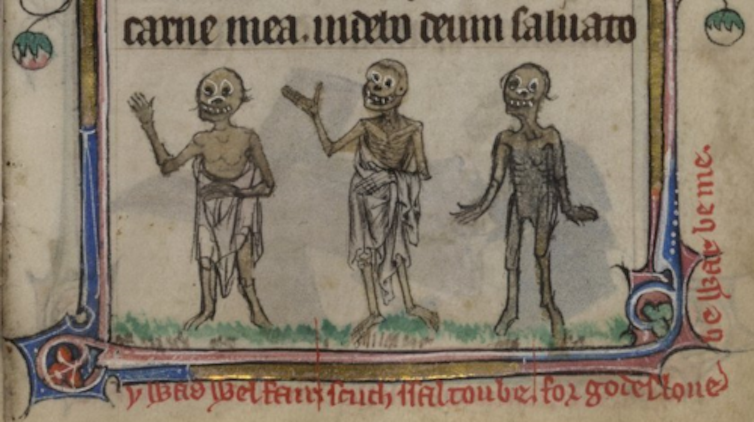 carne mea. uidebo deum saluato
y was wel fair scuch ssaltou be. for godes loue
be war be me.